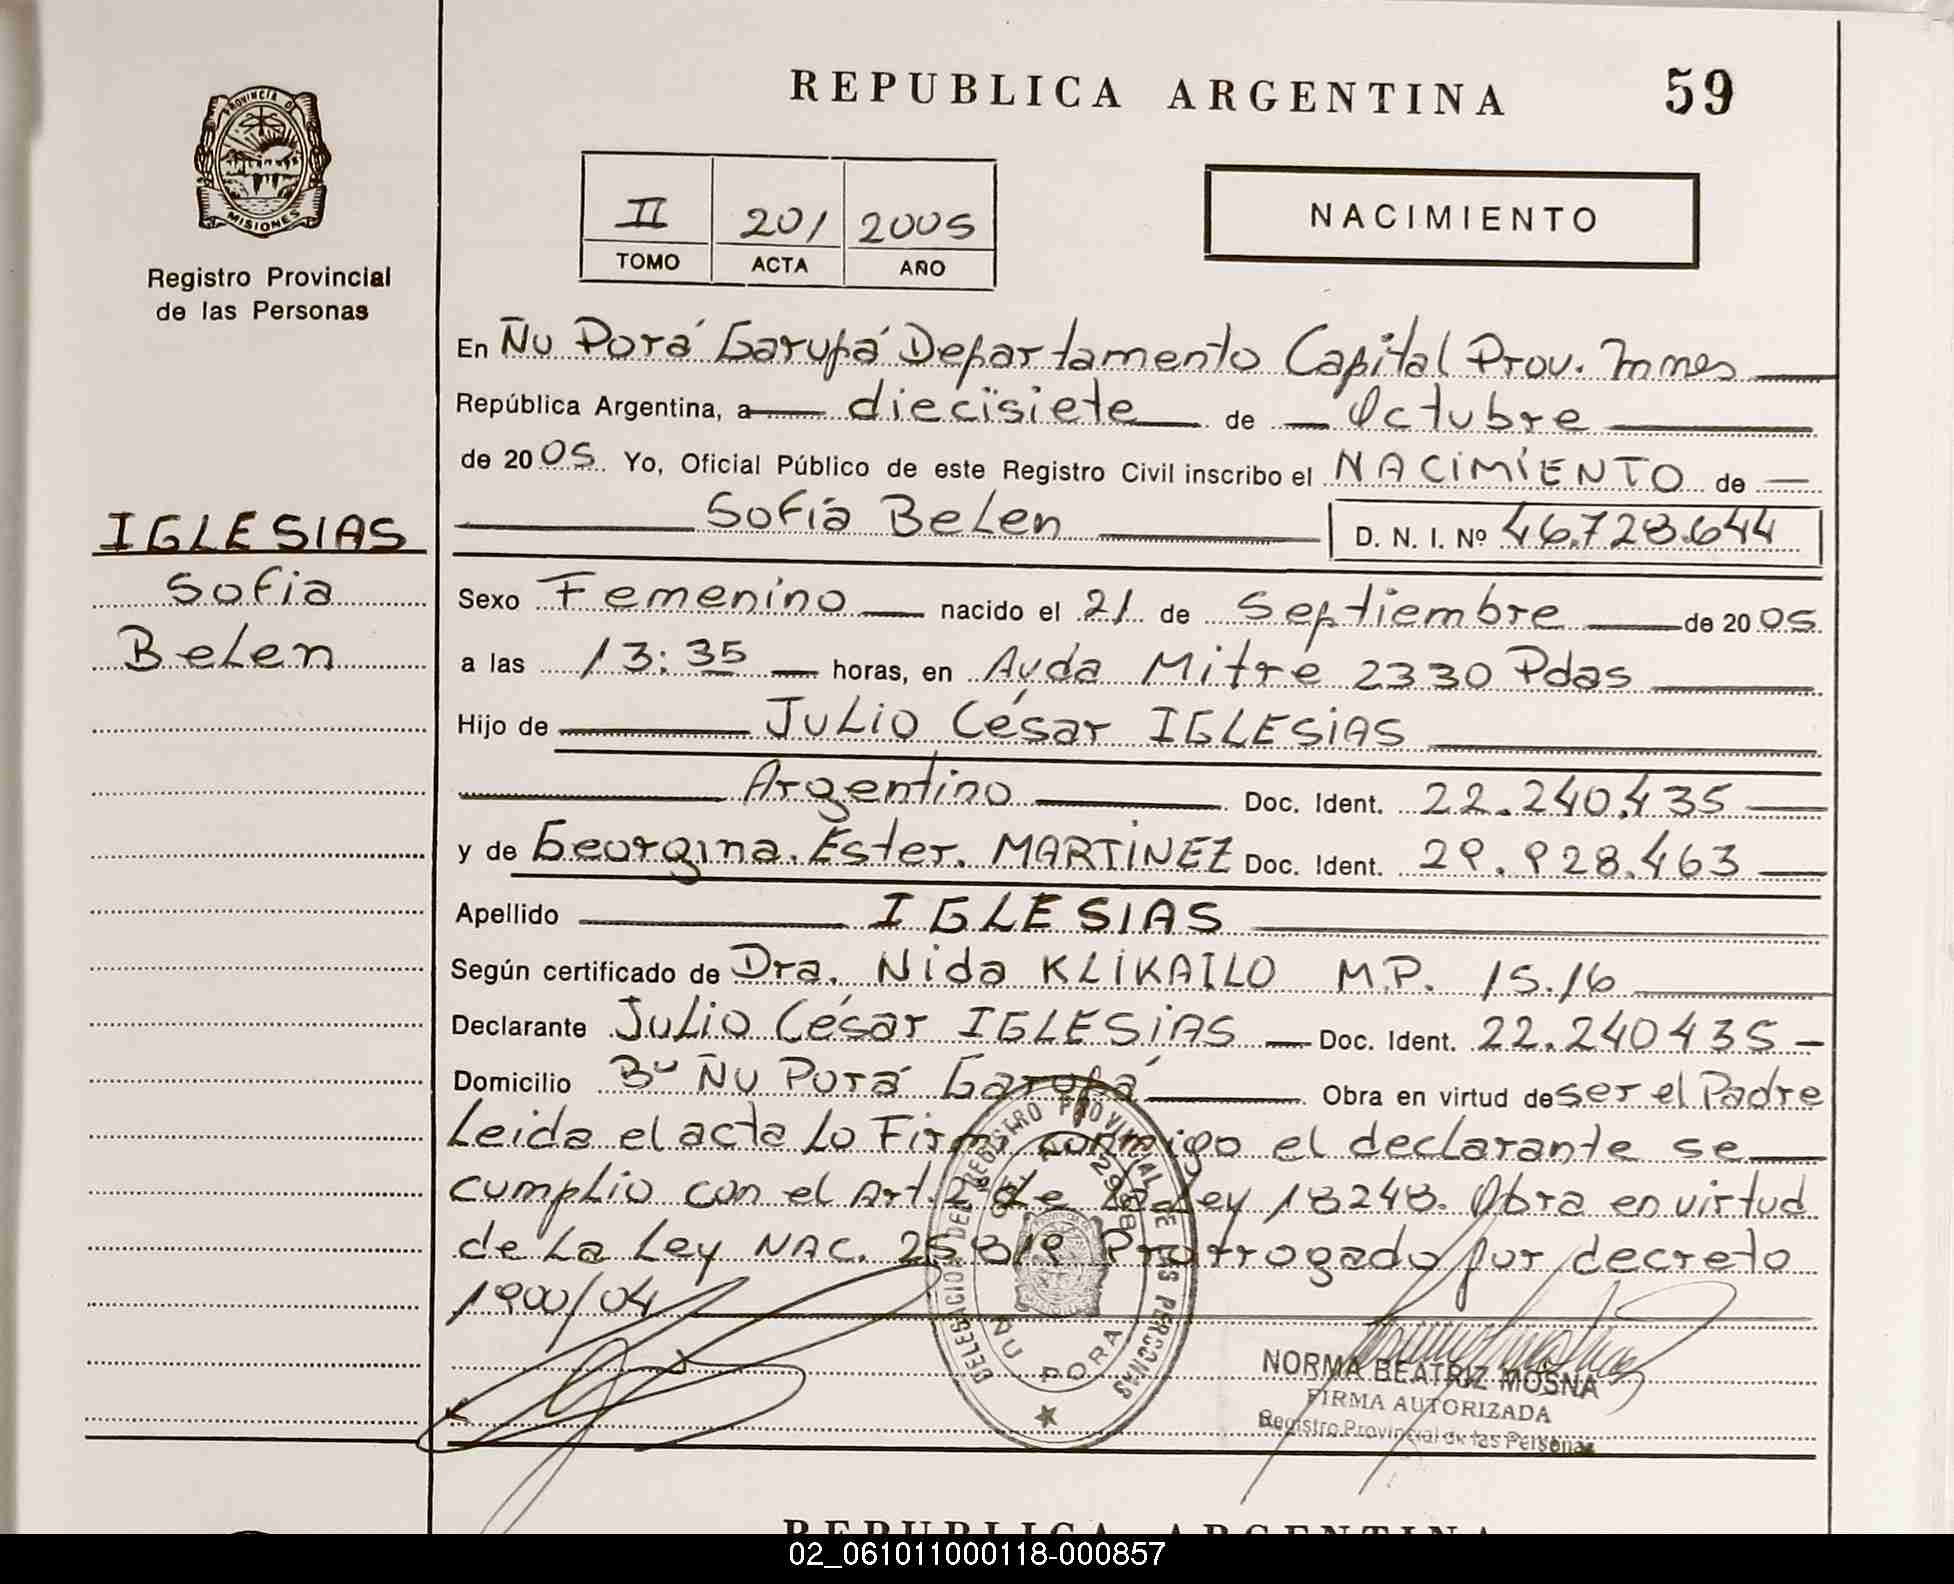 REPUBLICA ARGENTINA
59
PROVINCIA D
MISIONES
Registro Provincial
de las Personas
II 201 2005
TOMO ACTA AÑO
NACIMIENTO
En Ñu Porá Garupá Departamento Capital Prov. Mnes
República Argentina, a diecisiete de Octubre
de 2005. Yo, Oficial Público de este Registro Civil inscribo el NACIMIENTO de
Sofía Belen D. N. I. Nº 46.728.644
IGLESIAS
Sofia
Belen
Sexo Femenino nacido el 21 de Septiembre de 2005
a las 13:35 horas, en Avda Mitre 2330 Pdas
Hijo de Julio César IGLESIAS
Argentino Doc. Ident. 22.240.435
y de Georgina Ester MARTINEZ Doc. Ident. 29.928.463
Apellido IGLESIAS
Según certificado de Dra. Nida KLIKAILO M.P. 15.16
Declarante Julio César IGLESIAS Doc. Ident. 22.240435
Domicilio Bº Ñu Porá Garupá Obra en virtud de ser el Padre
Leida el acta Lo Firma conmigo el declarante se
cumplio con el Art. 2 de La Ley 18248. Obra en virtud
de La Ley NAC. 25819 Prorrogado por decreto
1900/04
DELEGACION DEL REGISTRO PROVINCIAL DE LAS PERSONAS
ÑU PORA
NORMA BEATRIZ MOSNA
FIRMA AUTORIZADA
Registro Provincial de las Personas
REPUBLICA ARGENTINA
02_061011000118-000857